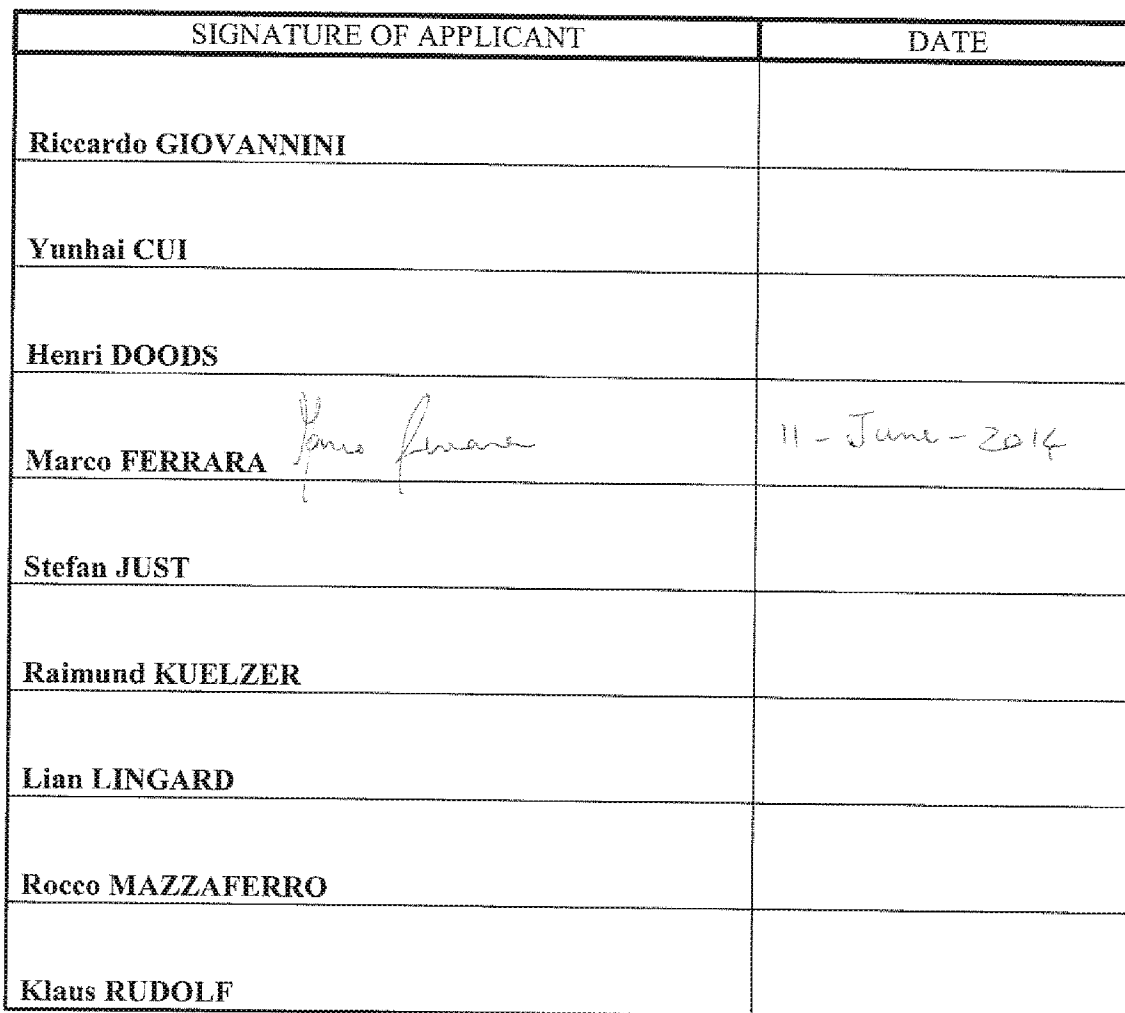 SIGNATURE OF APPLICANT DATE
Riccardo GIOVANNINI
Yunhai CUI
Henri DOODS
Marco FERRARA Marco Ferrara 11 - June - 2014
Stefan JUST
Raimund KUELZER
Lian LINGARD
Rocco MAZZAFERRO
Klaus RUDOLF